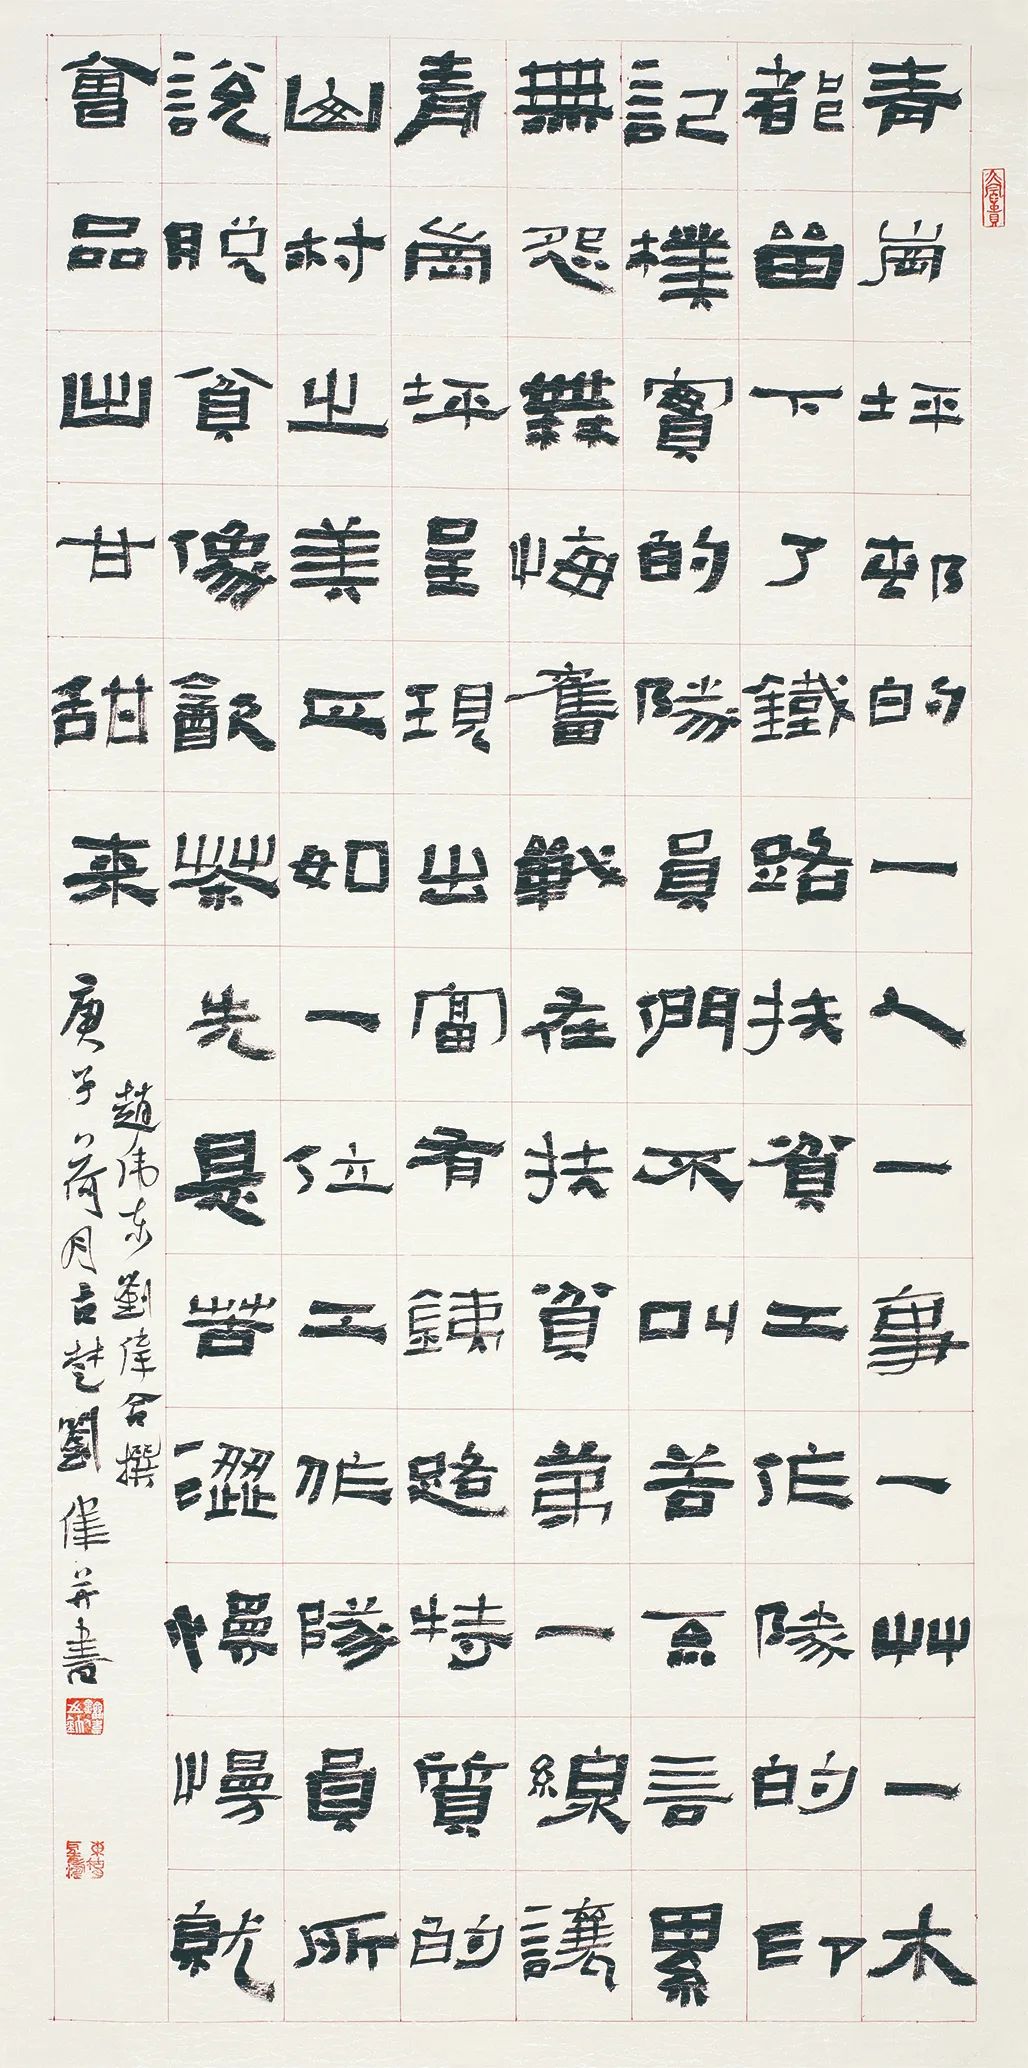 青崗坪邨的一人一事一艸一木
都留下了鐵路扶貧工作隊的印
記樸實的隊員們不叫苦不言累
無怨無悔奮戰在扶貧第一線讓
青崗坪呈現出富有鐵路特質的
山村之美正如一位工作隊員所
說脫貧像飲茶先是苦澀慢慢就
會品出甘甜来
趙伟东劉偉合撰
庚子荷月古楚劉偉并書